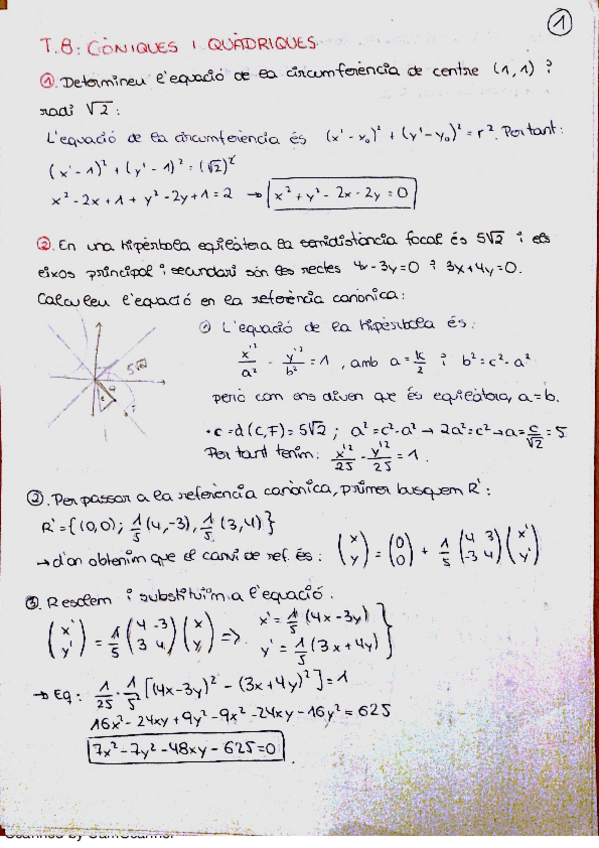 1
T.8: CÒNIQUES I QUÀDRIQUES.
① Determineu l'equació de la circumferència de centre (1,1) i
radi √2:
L'equació de la circumferència és (x'-x₀)² + (y'-y₀)² = r². Per tant:
(x'-1)² + (y'-1)² = (√2)²
x² - 2x + 1 + y² - 2y + 1 = 2 → x² + y² - 2x - 2y = 0
②. En una hipèrbola equilàtera la semidistància focal és 5√2 i els
eixos principal i secundari són les rectes 4x-3y=0 i 3x+4y=0.
Calculeu l'equació en la referència canònica:
① L'equació de la hipèrbola és:
x'²/a² - y'²/b² = 1, amb a = k/2 i b² = c² - a²
5√2
però com ens diuen que és equilàtera, a = b.
· c = d(C,F) = 5√2 ; a² = c² - a² → 2a² = c² → a = c/√2 = 5
Per tant tenim: x'²/25 - y'²/25 = 1.
② Per passar a la referència canònica, primer busquem R':
R' = {(0,0); 1/5 (4,-3), 1/5 (3,4)}
→ d'on obtenim que el canvi de ref. és: (x y) = (0 0) + 1/5 (4 3 -3 4) (x' y')
③. Resolem i substituïm a l'equació.
(x' y') = 1/5 (4 -3 3 4) (x y) => x' = 1/5 (4x-3y) y' = 1/5 (3x+4y) }
→ Eq: 1/25 · 1/5² [(4x-3y)² - (3x+4y)²] = 1
16x² - 24xy + 9y² - 9x² - 24xy - 16y² = 625
7x² - 7y² - 48xy - 625 = 0
Scanned by CamScanner